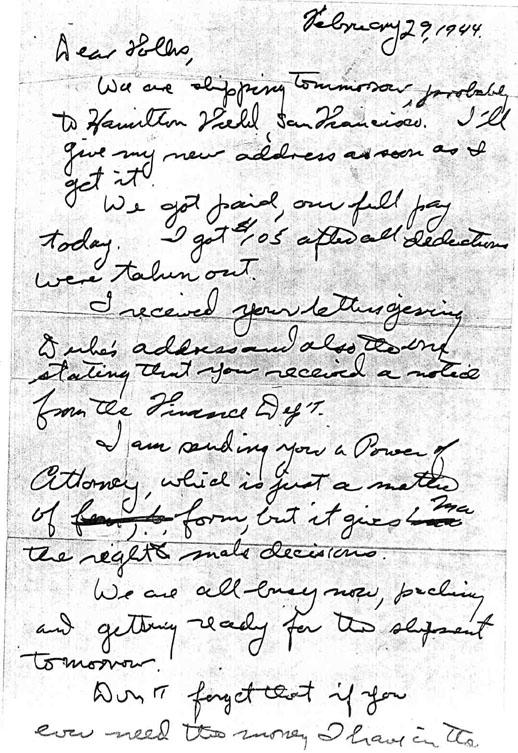 February 29, 1944.
Dear Folks,
We are shipping tommorow, probably
to Hamilton Field, San Francisco. I'll
give my new address as soon as I
get it.
We got paid, our full pay
today. I got $105 after all deductions
were taken out.
I received your letters giving
Duke's address and also the one
stating that you received a notice
from the Finance Dep't.
I am sending you a Power of
Attorney, which is just a matter
of form, but it gives Ma
the right to make decisions.
We are all busy now, packing
and getting ready for the shipment
tomorrow.
Don't forget that if you
ever need the money I have in the